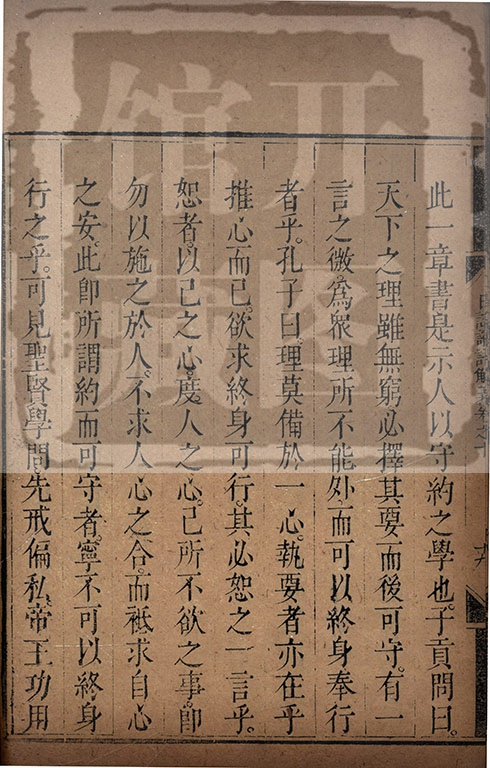 此一章書是示人以守約之學也。子貢問曰。
天下之理雖無窮必擇其要而後可守。有一
言之微爲衆理所不能外而可以終身奉行
者乎。孔子曰。理莫備於一心。執要者亦在乎
推心而已。欲求終身可行其必恕之一言乎。
恕者。以己之心。度人之心。己所不欲之事。即
勿以施之於人。不求人心之合。而祗求自心
之安。此卽所謂約而可守者。寧不可以終身
行之乎。可見聖賢學問先戒偏私。帝王功用